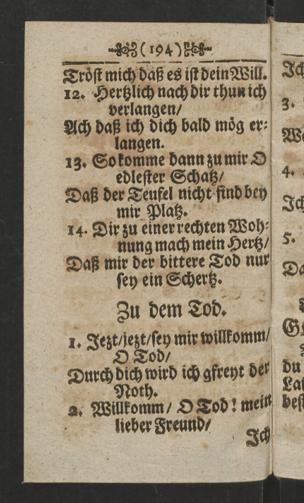 (194)
Tröst mich daß es ist dein Will.
12. Hertzlich nach dir thun ich
verlangen/
Ach daß ich dich bald mög er-
langen.
13. So komme dann zu mir O
edlester Schatz/
Daß der Teufel nicht find bey
mir Platz.
14. Dir zu einer rechten Woh-
nung mach mein Hertz/
Daß mir der bittere Tod nur
sey ein Schertz.
Zu dem Tod.
1. Jezt/jezt/sey mir willkomm/
O Tod/
Durch dich wird ich gfreyt der
Noth.
2. Willkomm/ O Tod! mein
lieber Freund/
Ich
Ich
3.
4.
Ich
5.
du